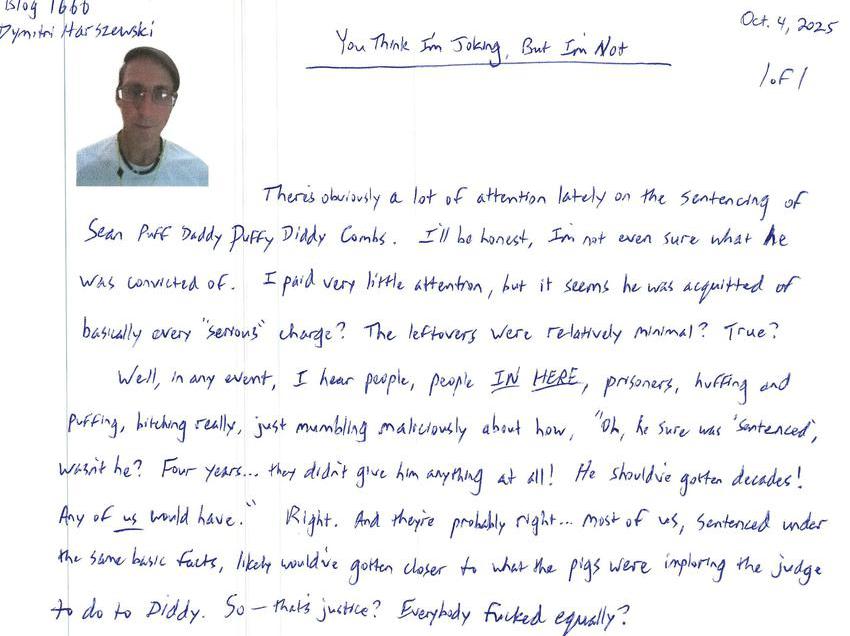 Blog 1666
Dymitri Harszewski
Oct. 4, 2025
You Think I'm Joking, But I'm Not
1 of 1
There's obviously a lot of attention lately on the sentencing of
Sean Puff Daddy Puffy Diddy Combs. I'll be honest, I'm not even sure what he
was convicted of. I paid very little attention, but it seems he was acquitted of
basically every "serious" charge? The leftovers were relatively minimal? True?
Well, in any event, I hear people, people IN HERE, prisoners, huffing and
puffing, bitching really, just mumbling maliciously about how, "Oh, he sure was 'sentenced',
wasn't he? Four years... they didn't give him anything at all! He should've gotten decades!
Any of us would have." Right. And they're probably right... most of us, sentenced under
the same basic facts, likely would've gotten closer to what the pigs were imploring the judge
to do to Diddy. So — that's justice? Everybody fucked equally?